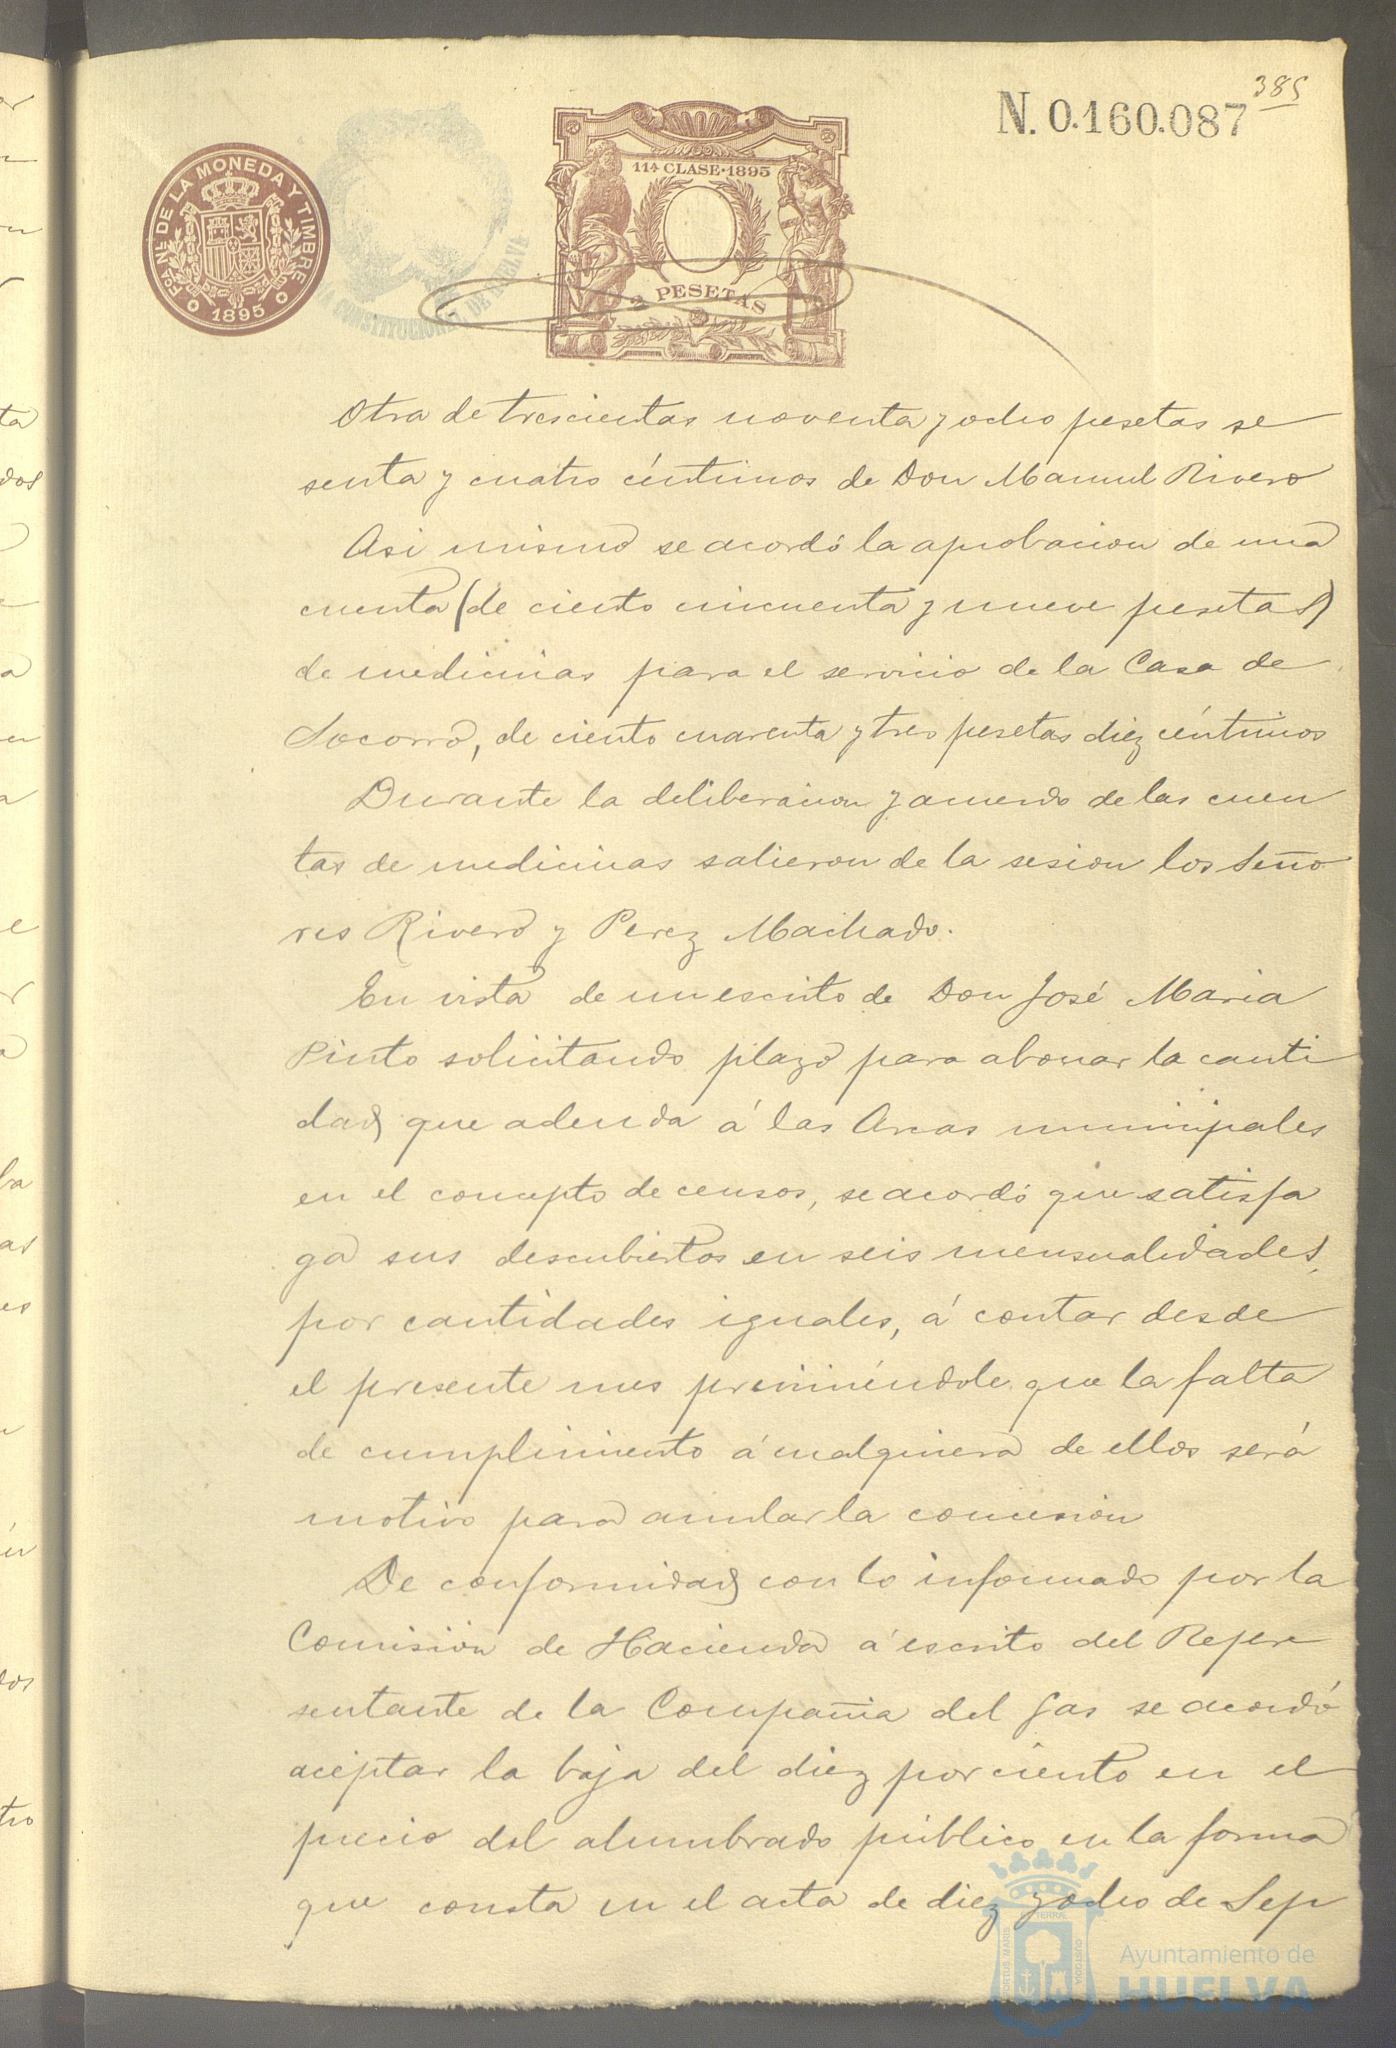 385
N. 0.160.087
FCA. NL. DE LA MONEDA Y TIMBRE
1895
11A CLASE·1895
2 PESETAS
CONSTITUCIONAL DE HUELVA
Otra de trescientas noventa y ocho pesetas se
senta y cuatro céntimos de Don Manuel Rivero
Asi mismo se acordó la aprobacion de una
cuenta (de ciento cincuenta y nueve pesetas)
de medicinas para el servicio de la Casa de
Socorro, de ciento cuarenta y tres pesetas diez céntimos
Durante la deliberacion y acuerdo de las cuen
tas de medicinas salieron de la sesion los Seño
res Rivero y Perez Machado.
En vista de un escrito de Don José Maria
Pinto solicitando plazo para abonar la canti
dad que adeuda á las Arcas municipales
en el concepto de censos, se acordó que satisfa
ga sus descubiertos en seis mensualidades,
por cantidades iguales, á contar desde
el presente mes previniéndole que la falta
de cumplimiento á cualquiera de ellos será
motivo para anular la concesion
De conformidad con lo informado por la
Comisión de Hacienda á escrito del Repre
sentante de la Compañia del Gas se acordó
aceptar la baja del diez por ciento en el
precio del alumbrado público en la forma
que consta en el acta de diez y ocho de Sep
PORTUS MARIS ET TERRAE CUSTODIA
Ayuntamiento de
HUELVA